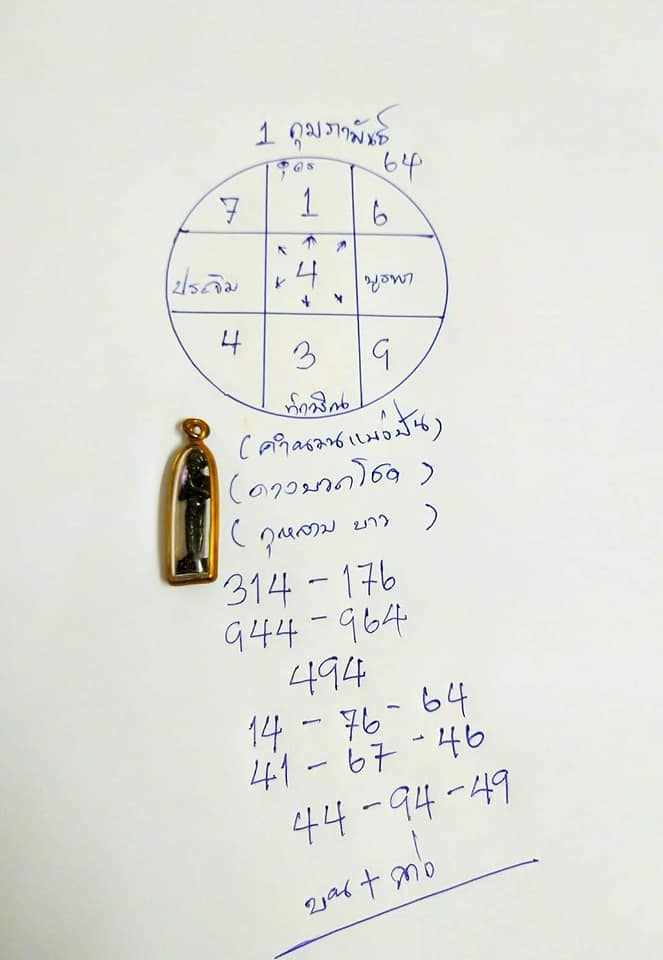 1 กุมภาพันธ์
64
อุดร
7 1 6
ประจิม 4 บูรพา
4 3 9
ทักษิณ
(คำนวนแม่งป่น)
(ดาวบวกโชค)
(กุหลาบ ขาว)
314 - 176
944 - 964
494
14 - 76 - 64
41 - 67 - 46
44 - 94 - 49
บน + ล่าง